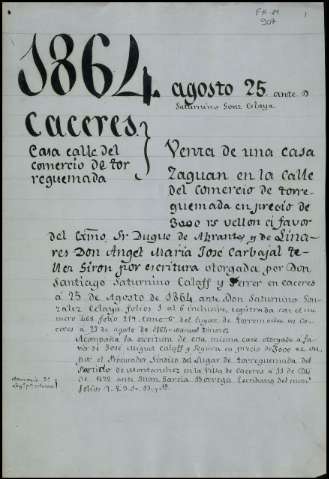 1864. agosto 25. ante D
Saturnino Gonz Celaya
Caceres.
Casa calle del
comercio de tor
reguemada
Venta de una casa
Zaguan en la calle
del comercio de torre-
guemada en precio de
3000 rs vellon á favor
del Exmo. Sr Duque de Abrantes y de Lina
res Don Angel Maria José Carbajal te-
llez Giron por escritura otorgada por Don
Santiago Saturnino Calaff y Ferrer en caceres
a 25 de Agosto de 1864 ante Don Saturnino Gon-
zalez Celaya folios 1 al 6 inclusive, registrada con el nu
mero 468 folio 214 tomo 5 del lugar de torreguemada en Ca-
ceres a 23 de agosto de 1865
Acompaña la escritura de esta misma casa otorgada a fa
vor de José Miguel Calaff y Segura en precio de
por el Procurador Sindico del Lugar de Torreguemada del
Partido de Montanchez en la Villa de Caceres a 11 de
de ante Juan Garcia Borrega Escribano del num
folios 7. 8. 9.